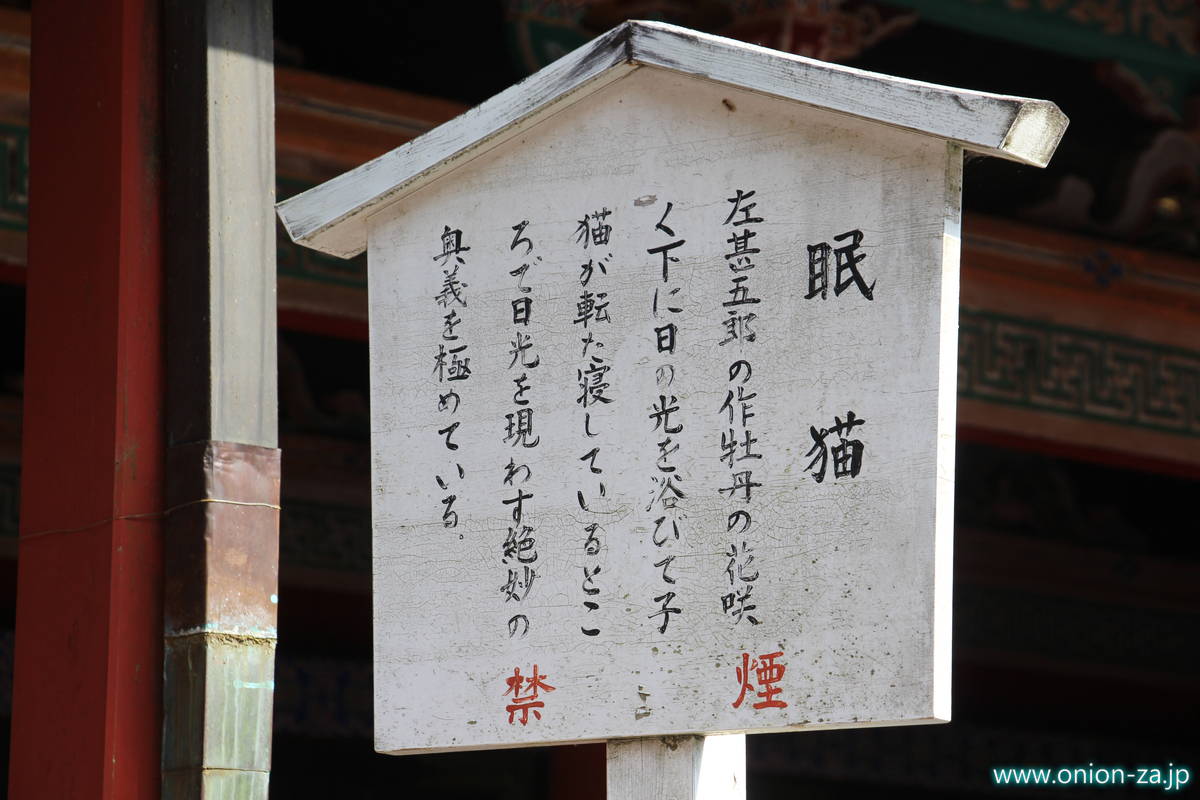 眠猫
左甚五郎の作牡丹の花咲
く下に日の光を浴びて子
猫が転た寝しているとこ
ろで日光を現わす絶妙の
奥義を極めている。
禁煙
www.onion-za.jp